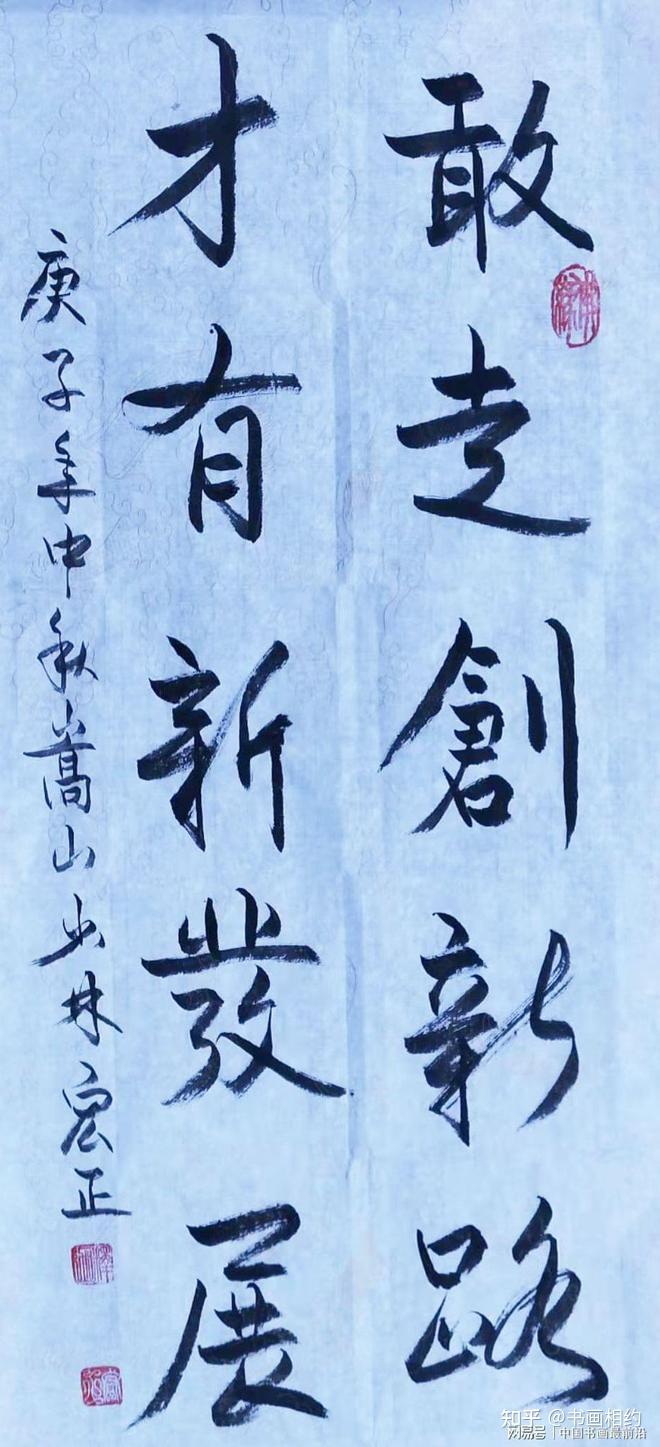 敢走創新路
才有新發展
庚子年中秋嵩山少林宏正
知乎 @书画相约
网易号 | 中国书画最前沿